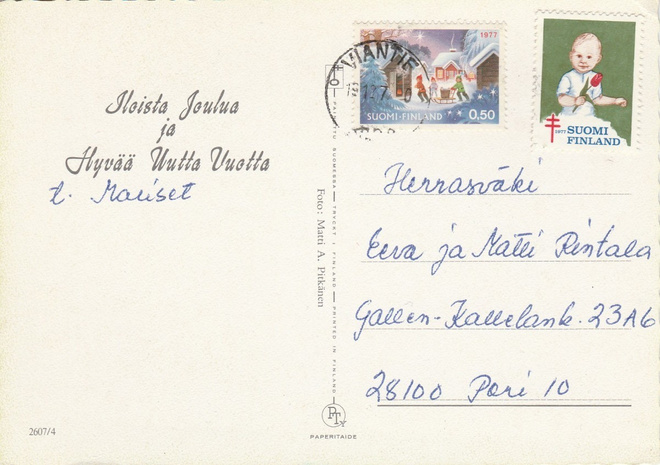 Iloista Joulua
ja
Hyvää Uutta Vuotta
t. Mariset
2607/4
Foto: Matti A. Pitkänen
PAINETTU SUOMESSA — TRYCKT I FINLAND — PRINTED IN FINLAND
PTy
PAPERITAIDE
1977
SUOMI-FINLAND 0,50
VIANTIE
1977 SUOMI
FINLAND
Herrasväki
Eeva ja Matti Rintala
Gallen-Kallelank. 23A6
28100 Pori 10